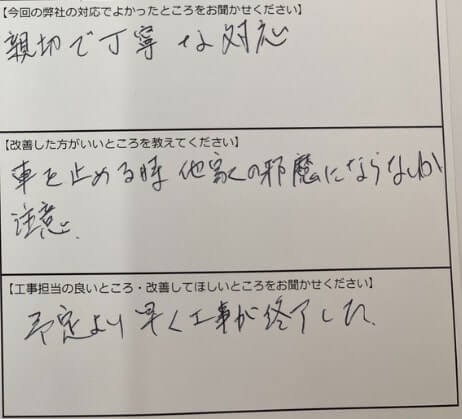 【今回の弊社の対応でよかったところをお聞かせください】
親切で丁寧な対応
【改善した方がいいところを教えてください】
車を止める時他家の邪魔にならないか
注意。
【工事担当の良いところ・改善してほしいところをお聞かせください】
予定より早く工事が終了した。